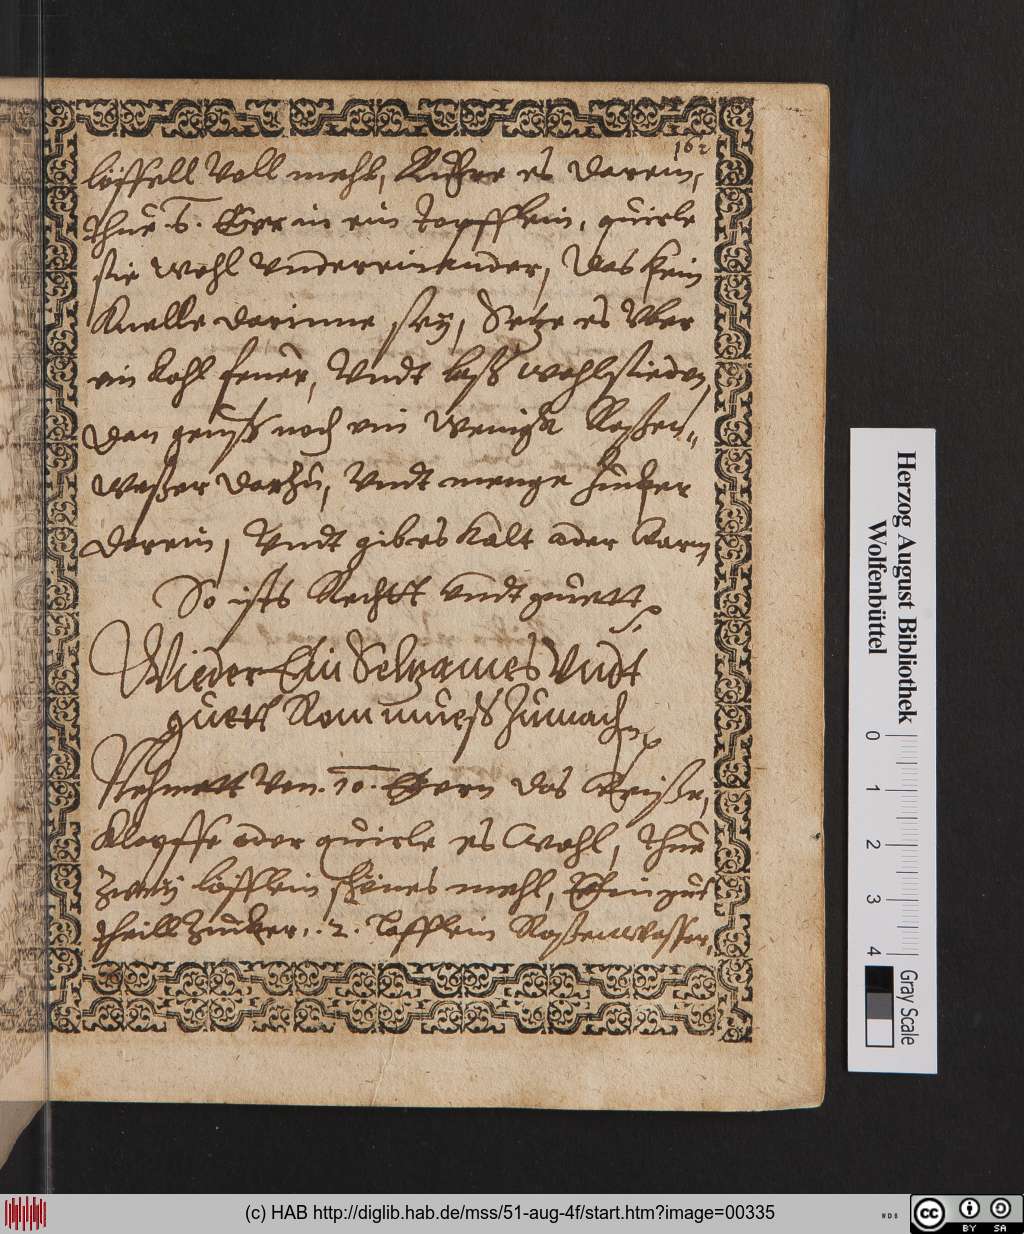 162
löffell Voll mehl, Rühre es darein,
thue 5. Eyer in ein topfflein, quirle
sie wohl Undereinander, das kein
Knelle darinne sey, Setze es Vber
ein kohl feuer, Undt laß wohl sieden,
dan geuß noch ein Wenigk Roßen"
waßer darzu, Undt menge zucker
darein, Undt gib es kalt oder Warm,
So ists Recht Undt guett
Wieder Ein Selzames Undt
guett Rom mueß Zumachen
Nehmett Von 10. Eyern das Weiße,
Klopffe oder quirle es Wohl, thue
zwey löfflein schönes mehl, Ein gut
theill Zucker, .2. Lofflein Roßenwasser,
Herzog August Bibliothek
Wolfenbüttel
0 1 2 3 4
Gray Scale
(c) HAB http://diglib.hab.de/mss/51-aug-4f/start.htm?image=00335
WDB
cc BY SA